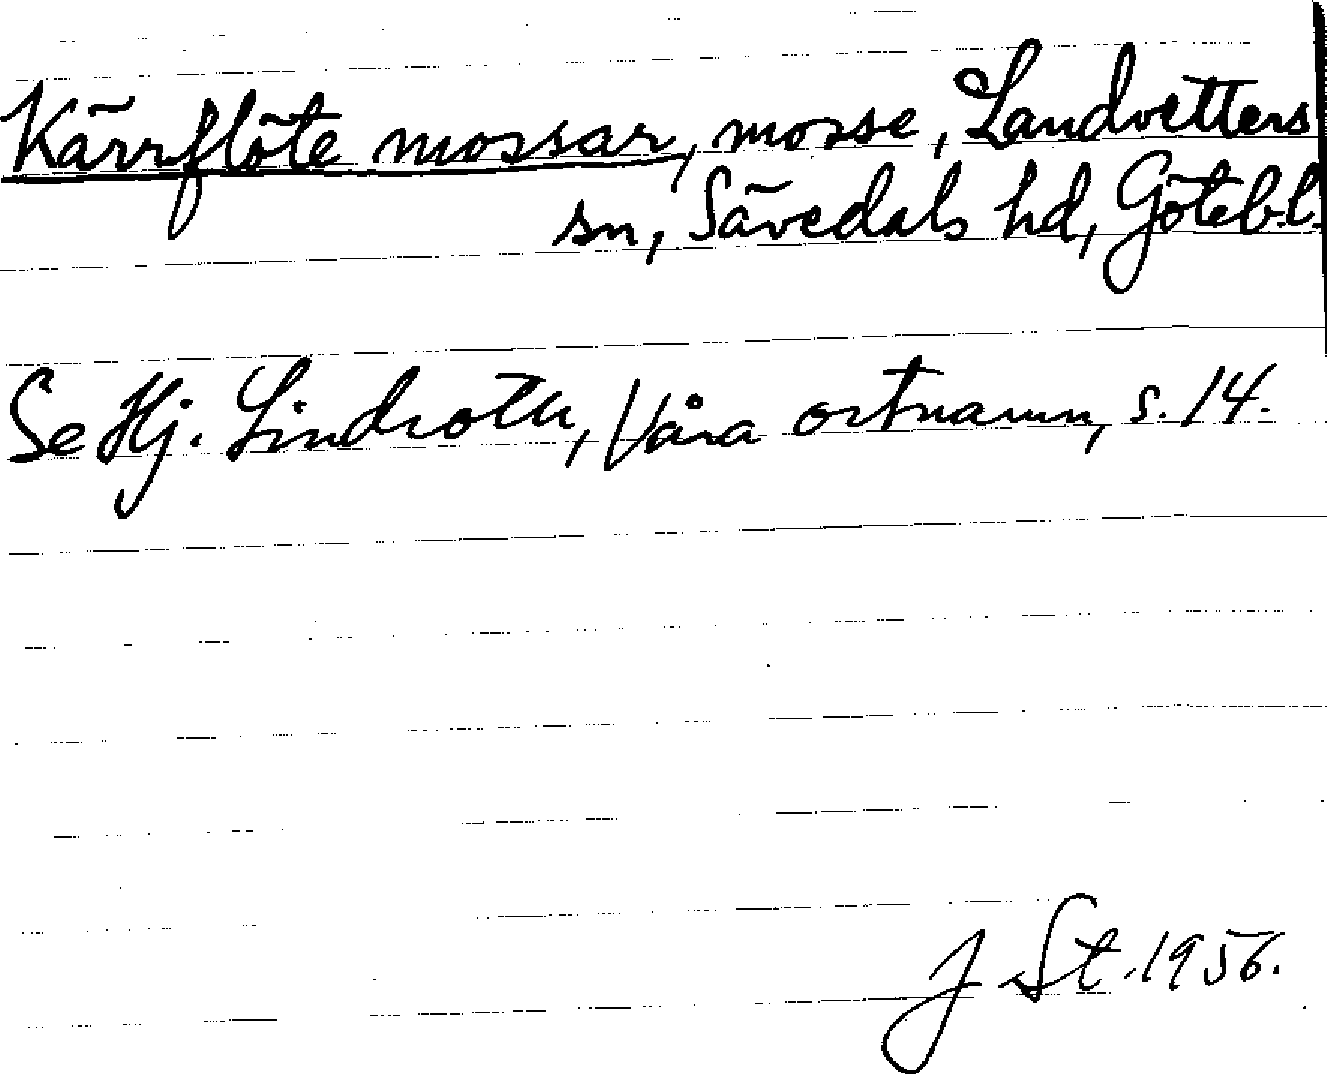 Kärrflöte mossar, mosse, Landvetters
sn, Sävedals hd, Göteb.l.
Se Hj. Lindroth, Våra ortnamn, s. 14.
J St. 1956.